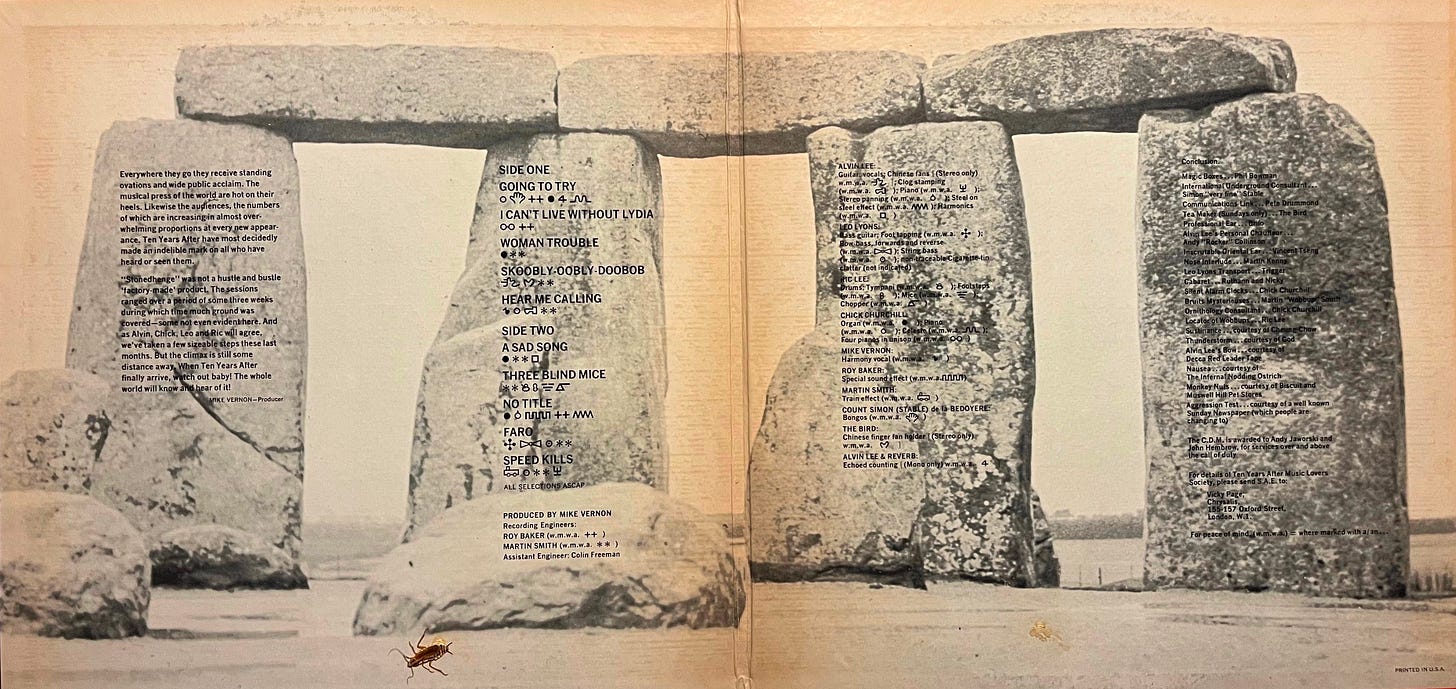 Everywhere they go they receive standing
ovations and wide public acclaim. The
musical press of the world are hot on their
heels. Likewise the audiences, the numbers
of which are increasing in almost over-
whelming proportions at every new appear-
ance. Ten Years After have most decidedly
made an indelible mark on all who have
heard or seen them.
"Stonedhenge" was not a hustle and bustle
'factory-made' product. The sessions
ranged over a period of some three weeks
during which time much ground was
covered—some not even evident here. And
as Alvin, Chick, Leo and Ric will agree,
we've taken a few sizeable steps these last
months. But the climax is still some
distance away. When Ten Years After
finally arrive, watch out baby! The whole
world will know and hear of it!
MIKE VERNON—Producer
SIDE ONE
GOING TO TRY
++ 4
I CAN'T LIVE WITHOUT LYDIA
++
WOMAN TROUBLE
**
SKOOBLY-OOBLY-DOOBOB
**
HEAR ME CALLING
**
SIDE TWO
A SAD SONG
**
THREE BLIND MICE
**
NO TITLE
++
FARO
**
SPEED KILLS
**
ALL SELECTIONS ASCAP
PRODUCED BY MIKE VERNON
Recording Engineers:
ROY BAKER (w.m.w.a. ++ )
MARTIN SMITH (w.m.w.a. ** )
Assistant Engineer: Colin Freeman
ALVIN LEE:
Guitar, vocals; Chinese fans | (Stereo only)
w.m.w.a. ); Clog stamping
(w.m.w.a. ); Piano (w.m.w.a. );
Stereo panning (w.m.w.a. ); Steel on
steel effect (w.m.w.a. ); Harmonics
(w.m.w.a. )
LEO LYONS:
Bass guitar; Foot tapping (w.m.w.a. );
Bow bass, forwards and reverse
(w.m.w.a. ); String bass
(w.m.w.a. ); non-traceable Cigarette-tin
clatter (not indicated)
RIC LEE:
Drums; Tympani (w.m.w.a. ); Footsteps
(w.m.w.a. ); Mice (w.m.w.a. );
Chopper (w.m.w.a. )
CHICK CHURCHILL:
Organ (w.m.w.a. ); Piano
(w.m.w.a. ); Celeste (w.m.w.a. );
Four pianos in unison (w.m.w.a. )
MIKE VERNON:
Harmony vocal (w.m.w.a. )
ROY BAKER:
Special sound effect (w.m.w.a. )
MARTIN SMITH:
Train effect (w.m.w.a. )
COUNT SIMON (STABLE) de la BEDOYERE:
Bongos (w.m.w.a. )
THE BIRD:
Chinese finger fan holder | (Stereo only)
w.m.w.a.
ALVIN LEE & REVERB:
Echoed counting | (Mono only) w.m.w.a. 4
Conclusion...
Magic Boxes... Phil Bowman
International Underground Consultant...
Simon "very fine" Stable
Communications Link... Pete Drummond
Tea Maker (Sundays only)... The Bird
Professional Ear...
Alvin Lee's Personal Chauffeur...
Andy "Rocker" Collinson
Inscrutable Oriental Ear... Vincent Tseng
Nose Interlude... Martin Kenny
Leo Lyons Transport... Trigger
Cabaret... Ruthann and Nicky
Silent Alarm Clocks... Chick Churchill
Bruits Mysterieuses... Martin "Wobbup" Smith
Ornithology Consultant... Chick Churchill
Locator of Wobbups... Ric Lee
Sustinance... courtesy of Cheung Chow
Thunderstorm... courtesy of God
Alvin Lee's Bow... courtesy of
Decca Red Leader Tape
Nausea... courtesy of
The Infernal Nodding Ostrich
Monkey Nuts... courtesy of Biscuit and
Muswell Hill Pet Stores
Aggression Test... courtesy of a well known
Sunday Newspaper (which people are
changing to)
The C.D.M. is awarded to Andy Jaworski and
John Hembrow, for services over and above
the call of duty
For details of Ten Years After Music Lovers
Society, please send S.A.E. to:
Vicky Page,
Chrysalis,
155-157 Oxford Street,
London, W.1.
For peace of mind, (w.m.w.a.) = where marked with a/an...
PRINTED IN U.S.A.